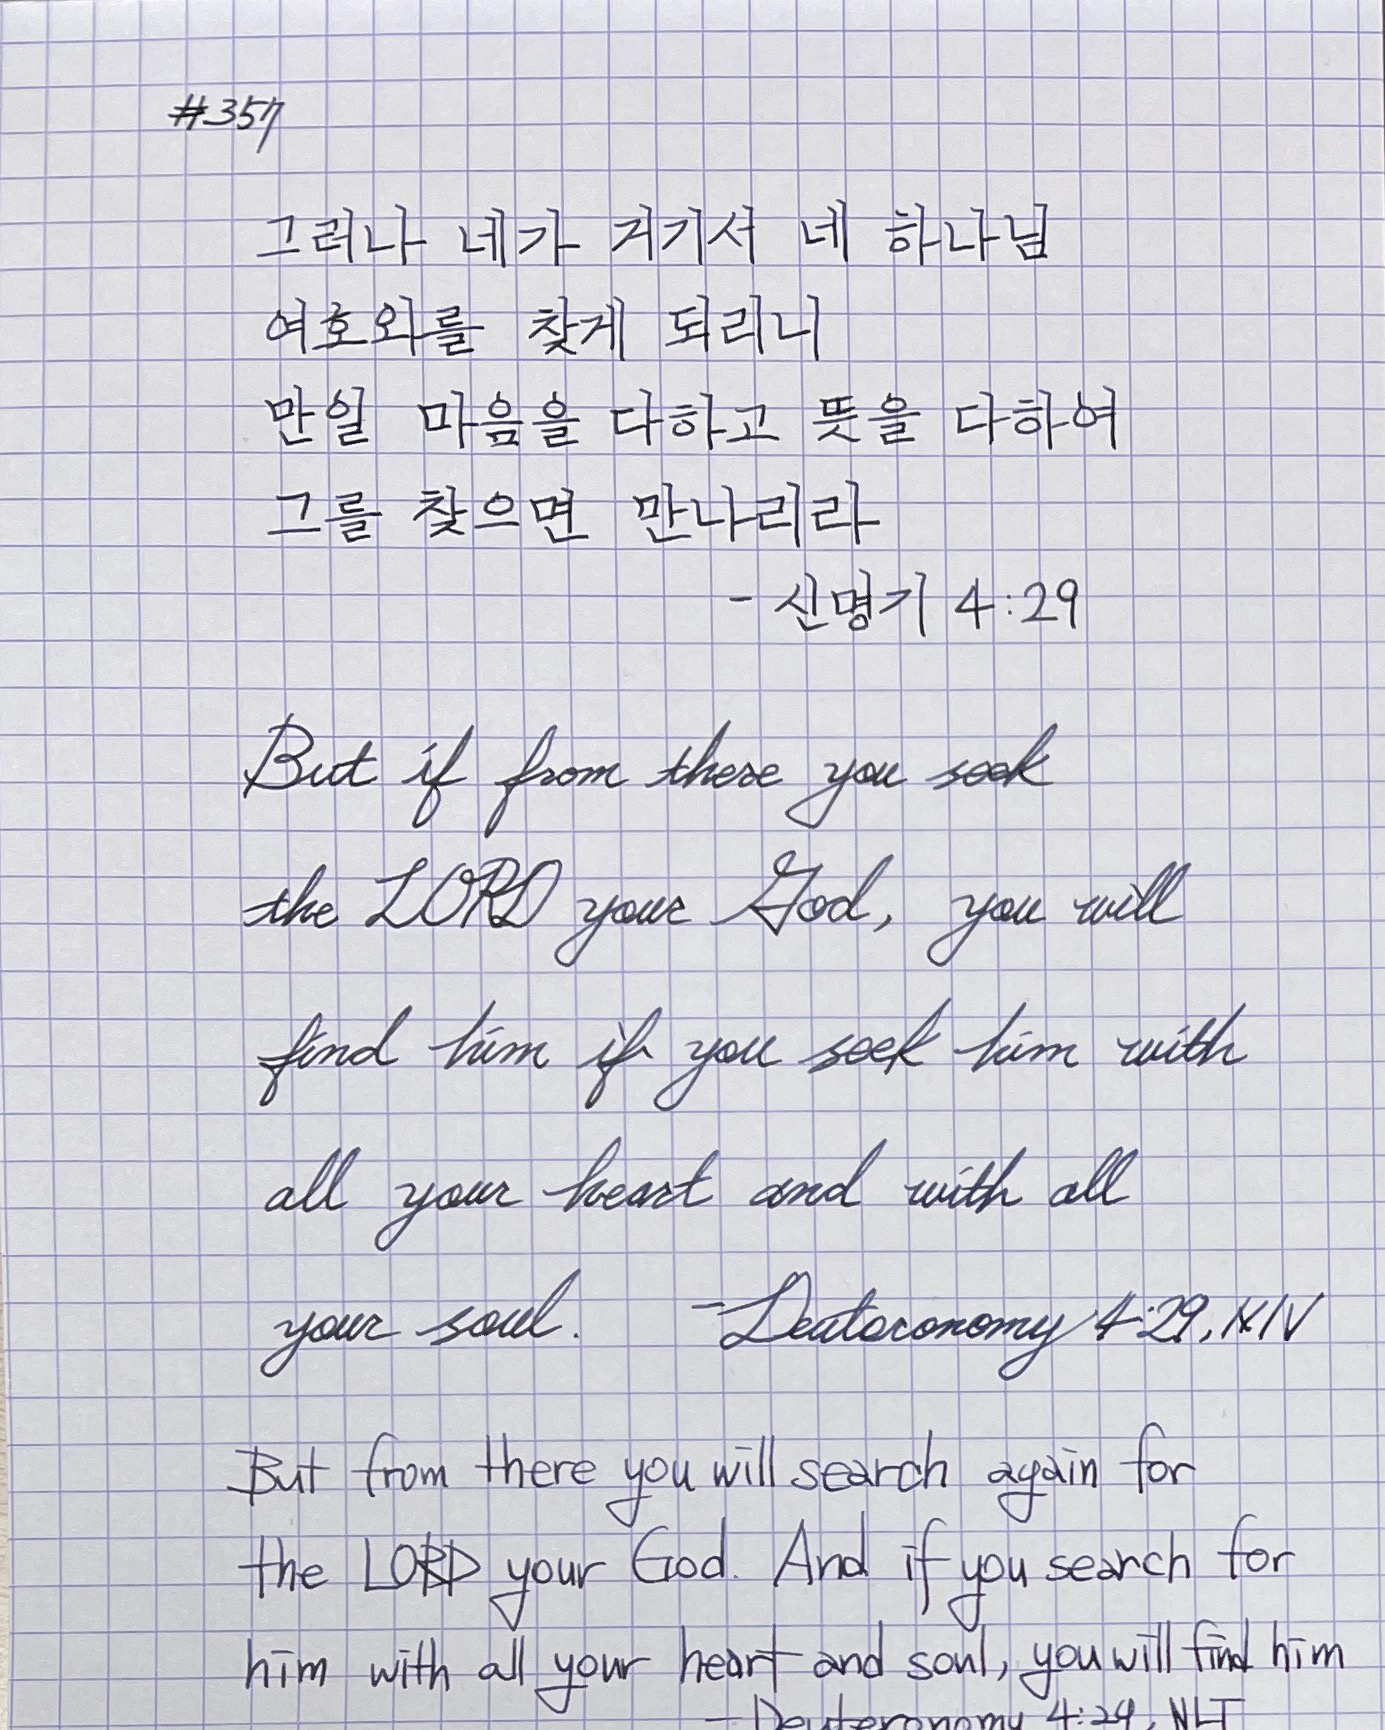 #357
그러나 네가 거기서 네 하나님
여호와를 찾게 되리니
만일 마음을 다하고 뜻을 다하여
그를 찾으면 만나리라
- 신명기 4:29
But if from there you seek
the LORD your God, you will
find him if you seek him with
all your heart and with all
your soul. - Deuteronomy 4:29, NIV
But from there you will search again for
the LORD your God. And if you search for
him with all your heart and soul, you will find him
- Deuteronomy 4:29, NLT